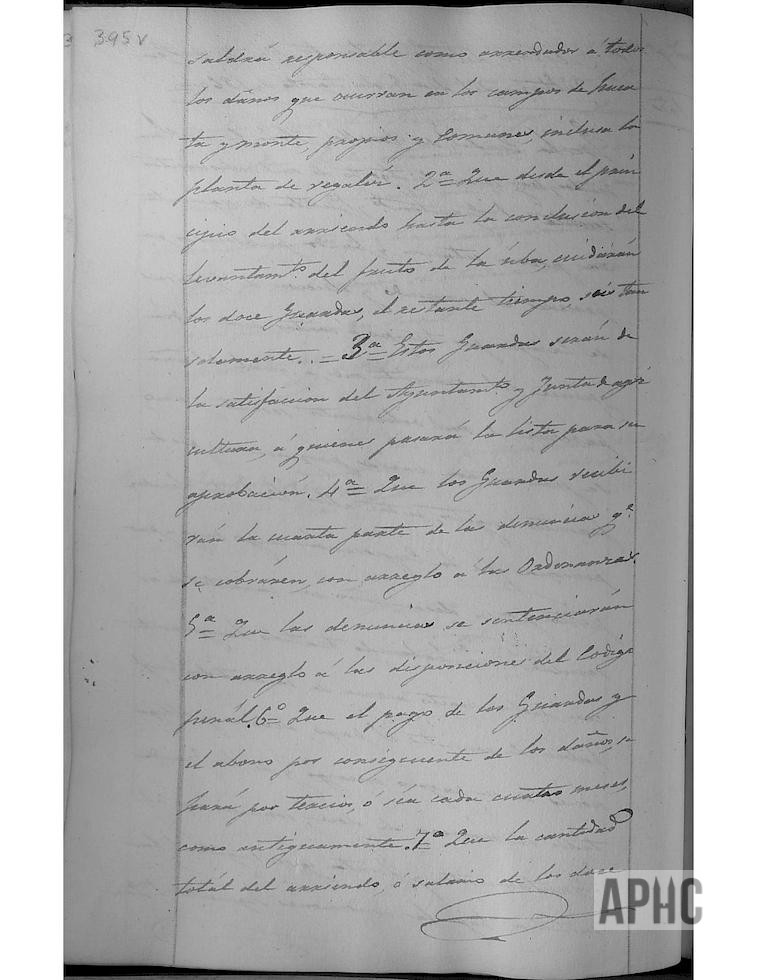 395 v
saldrá responsable como arrendador á todos
los daños que ocurran en los campos de huer
ta y monte, propios y Comunes, inclusa la
planta de regaliz. 2ª Que desde el prin
cipio del arriendo hasta la conclusion del
levantamto. del fruto de la uba, cuidarán
los doce Guardas, el restante tiempo, seis tan
solamente. = 3ª Estos Guardas serán de
la satisfaccion del Ayuntamto. y Junta de agri
cultura, á quienes pasará la lista para su
aprobación. 4ª Que los Guardas recibi
rán la cuarta parte de las denuncias qe.
se cobráren, con arreglo á las Ordenanzas.
5ª Que las denuncias se sentenciarán
con arreglo á las disposiciones del Codigo
penál. 6º Que el pago de los Guardas y
el abono por consiguiente de los daños, se
hará por tercios, ó séa cada cuatro meses,
como antiguamente. 7ª Que la cantidad
totál del arriendo, ó salario de los doce
APHC